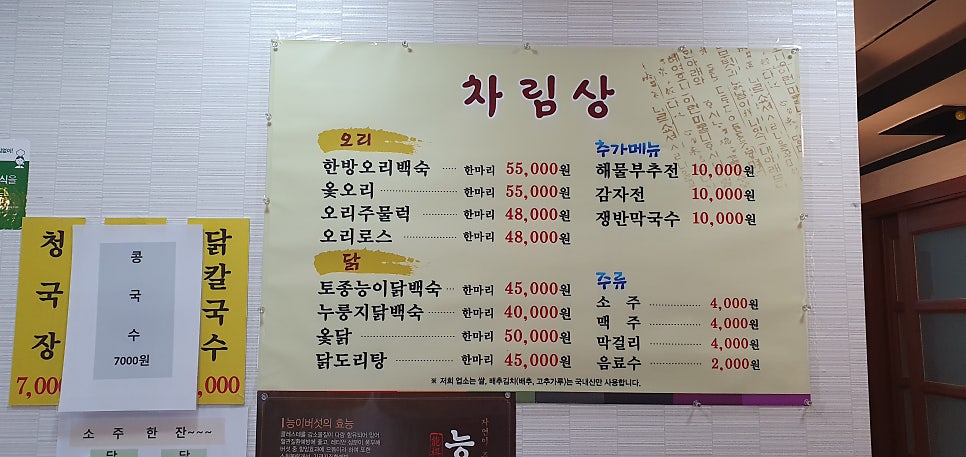 차림상
오리
한방오리백숙 ····· 한마리 55,000원
옻오리 ····· 한마리 55,000원
오리주물럭 ····· 한마리 48,000원
오리로스 ····· 한마리 48,000원
닭
토종능이닭백숙 ··· 한마리 45,000원
누룽지닭백숙 ····· 한마리 40,000원
옻닭 ····· 한마리 50,000원
닭도리탕 ····· 한마리 45,000원
추가메뉴
해물부추전 10,000원
감자전 10,000원
쟁반막국수 10,000원
주류
소 주 ····· 4,000원
맥 주 ····· 4,000원
막걸리 ····· 4,000원
음료수 ····· 2,000원
※ 저희 업소는 쌀, 배추김치(배추, 고추가루)는 국내산만 사용합니다.
청국장
7,000
콩국수
7000원
닭칼국수
,000
소 주 한 잔~~~
능이버섯의 효능
능